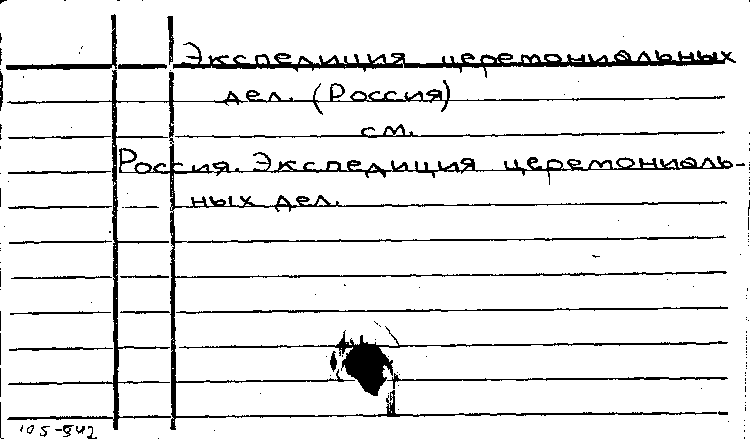 Экспедиция церемониальных
дел. (Россия)
см.
Россия. Экспедиция церемониаль-
ных дел.
105-542